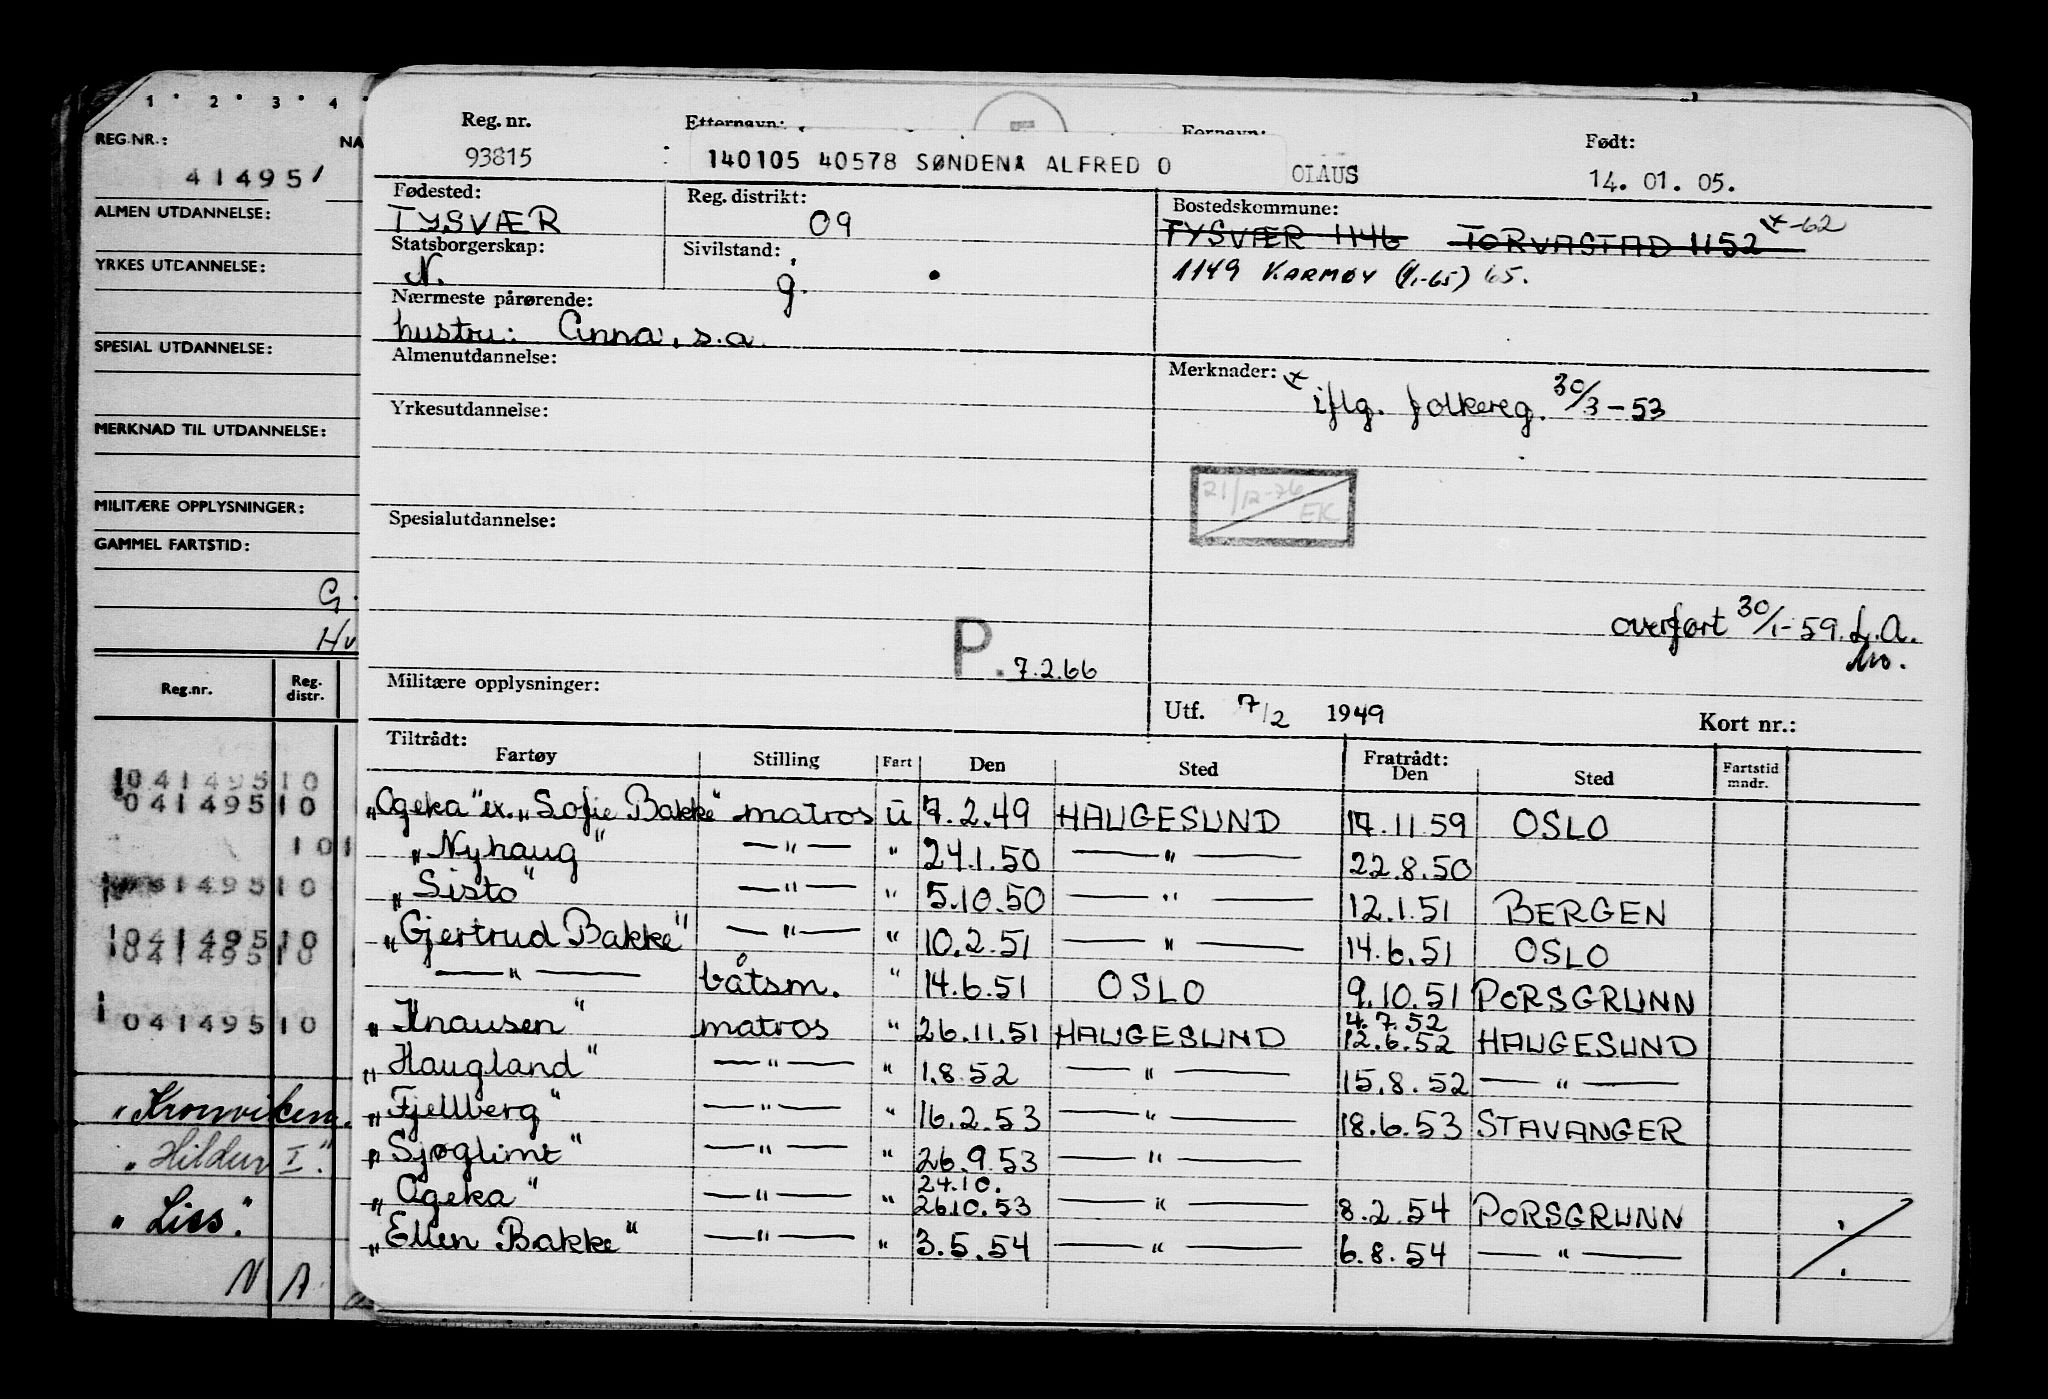 1 2 3 4
REG.NR.: NA
41495/
ALMEN UTDANNELSE:
YRKES UTDANNELSE:
SPECIAL UTDANNELSE:
MERKNAD TIL UTDANNELSE:
MILITÆRE OPPLYSNINGER:
GAMMEL FARTSTID:
G.
Hv
Reg.nr. Reg. distr.
104149510
04149510
101
4149510
104149510
04149510
04149510
"Kronviken
"Hildur I."
"Liss."
N A.
Reg. nr. Etternavn: Fornavn: Født:
93815 140105 40578 SØNDENÅ ALFRED O OLAUS 14. 01. 05.
Fødested: Reg. distrikt: Bostedskommune:
TYSVÆR 09 TYSVÆR 1146 TORVASTAD 1152 x-62
Statsborgerskap: Sivilstand:
N. g. 1149 KARMØY (1/1-65) 65.
Nærmeste pårørende:
hustru: Anna, s.a.
Almenutdannelse: Merknader: x
iflg. folkereg. 30/3-53
Yrkesutdannelse:
21/12-76 EK
Spesialutdannelse:
overført 30/1-59. L.A.
P. 7.2.66
Militære opplysninger: Utf. 7/2 1949 Kort nr.:
Tiltrådt: Fratrådt:
Fartøy Stilling Fart Den Sted Den Sted Fartstid mndr.
"Ogeka" ex. "Sofie Bakke" matros u 7.2.49 HAUGESUND 17.11.59 OSLO
"Nyhaug" —"— " 24.1.50 —"— 22.8.50
"Sisto" —"— " 5.10.50 —"— 12.1.51 BERGEN
"Gjertrud Bakke" —"— " 10.2.51 —"— 14.6.51 OSLO
—"— båtsm. " 14.6.51 OSLO 9.10.51 PORSGRUNN
4.7.52
"Knausen" matros " 26.11.51 HAUGESUND 12.6.52 HAUGESUND
"Haugland" —"— " 1.8.52 —"— 15.8.52 —"—
"Fjellberg" —"— " 16.2.53 —"— 18.6.53 STAVANGER
"Sjøglimt" —"— " 26.9.53 —"—
24.10.
"Ogeka" —"— " 26.10.53 —"— 8.2.54 PORSGRUNN
"Ellen Bakke" —"— " 3.5.54 —"— 6.8.54 —"—